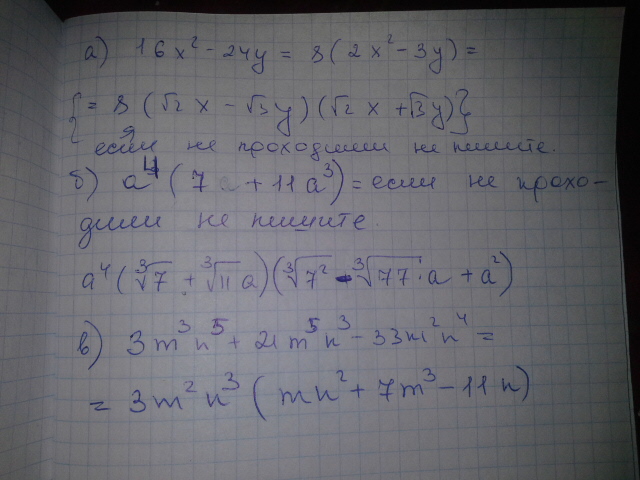 а) 16x² - 24y = 8(2x² - 3y) =
{= 8(√2 x - √3y)(√2 x + √3y)}
если не проходили не пишите.
б) a⁴(7 + 11a³) = если не прохо-
дили не пишите.
a⁴(∛7 + ∛11 a)(∛7² - ∛77·a + a²)
в) 3m³n⁵ + 21m⁵n³ - 33m²n⁴ =
= 3m²n³(mn² + 7m³ - 11n)